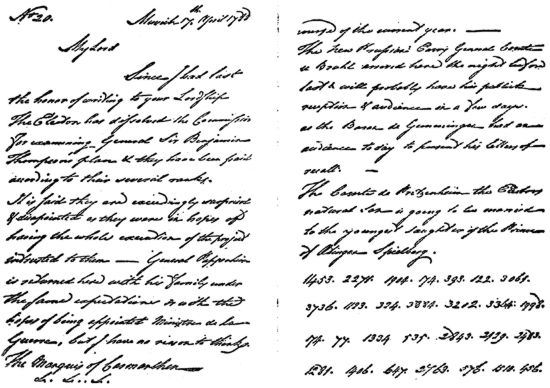 No 20. Munich 17th April 1788
My Lord
Since I had last
the honor of writing to your Lordship
The Elector has dissolved the Commission
for examining General Sir Benjamin
Thompson's plans & they have been paid
according to their several ranks.
It is said they are exceedingly surprised
& disappointed as they were in hopes of
having the whole execution of the project
intrusted to them — General
is returned here with his family under
the same expectations as with the
hopes of being appointed Ministre de la
Guerre, but I have no reason to think so.
The Marquis of Carmarthen
&. &.. &.
course of the current year. —
The New Prussian Envoy General Comte
de Bruhl arrived here the night before
last & will probably have his publick
reception & audience in a few days.
as the Baron de Gemmingen had an
audience to day to present his letters of
recall. —
The Comte de Bretzenheim the Electors
natural Son is going to be married
to the youngest daughter of the Prince
of Ottingen Spielberg.
1453. 2271. 1904. 74. 393. 122. 3061.
3736. 1193. 334. 3884. 3202. 3364. 1798.
74. 77. 1334. 535. 2843. 2139. 2483.
1281. 406. 647. 2763. 576. 1210. 456.